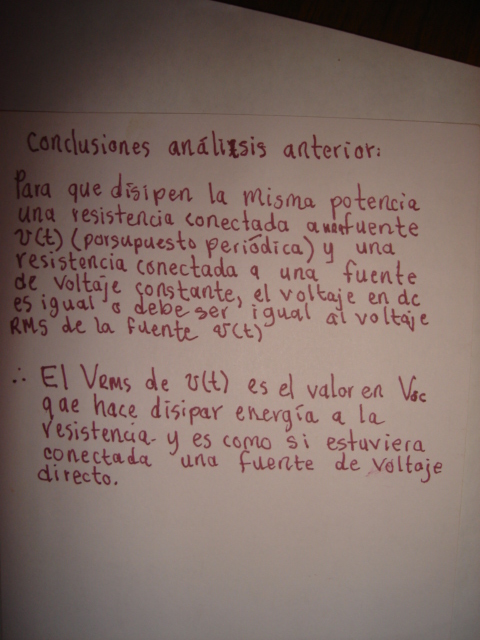 Conclusiones análisis anterior:
Para que disipen la misma potencia
una resistencia conectada a una fuente
v(t) (porsupuesto periódica) y una
resistencia conectada a una fuente
de voltaje constante, el voltaje en dc
es igual o debe ser igual al voltaje
RMS de la fuente v(t)
∴ El VRMS de v(t) es el valor en Vdc
que hace disipar energía a la
resistencia y es como si estuviera
conectada una fuente de voltaje
directo.